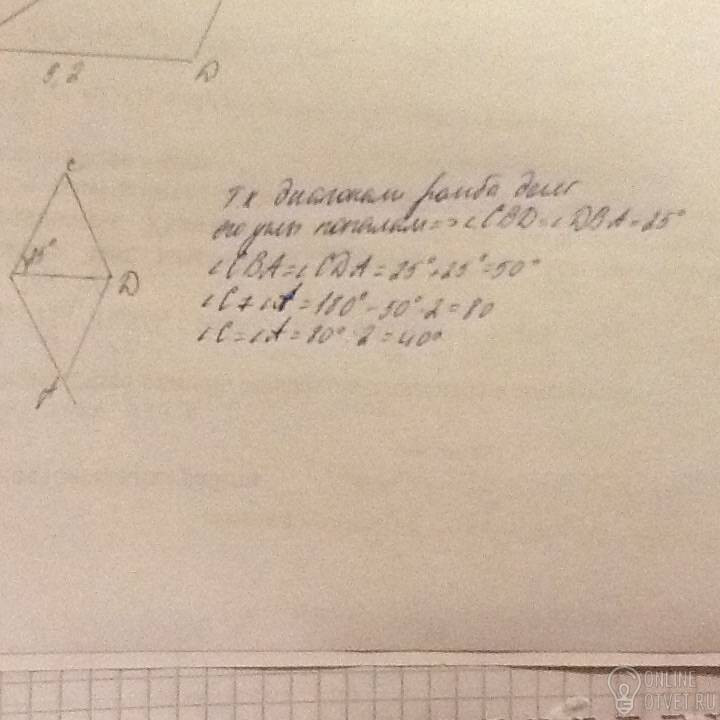 9,2
D
C
25°
D
A
Тк диагонали ромба делят
его углы пополам => ∠CBD = ∠DBA = 25°
∠CBA = ∠CDA = 25° + 25° = 50°
∠C + ∠A = 180° - 50° · 2 = 80
∠C = ∠A = 80° : 2 = 40°
ONLINE
OTVET.RU